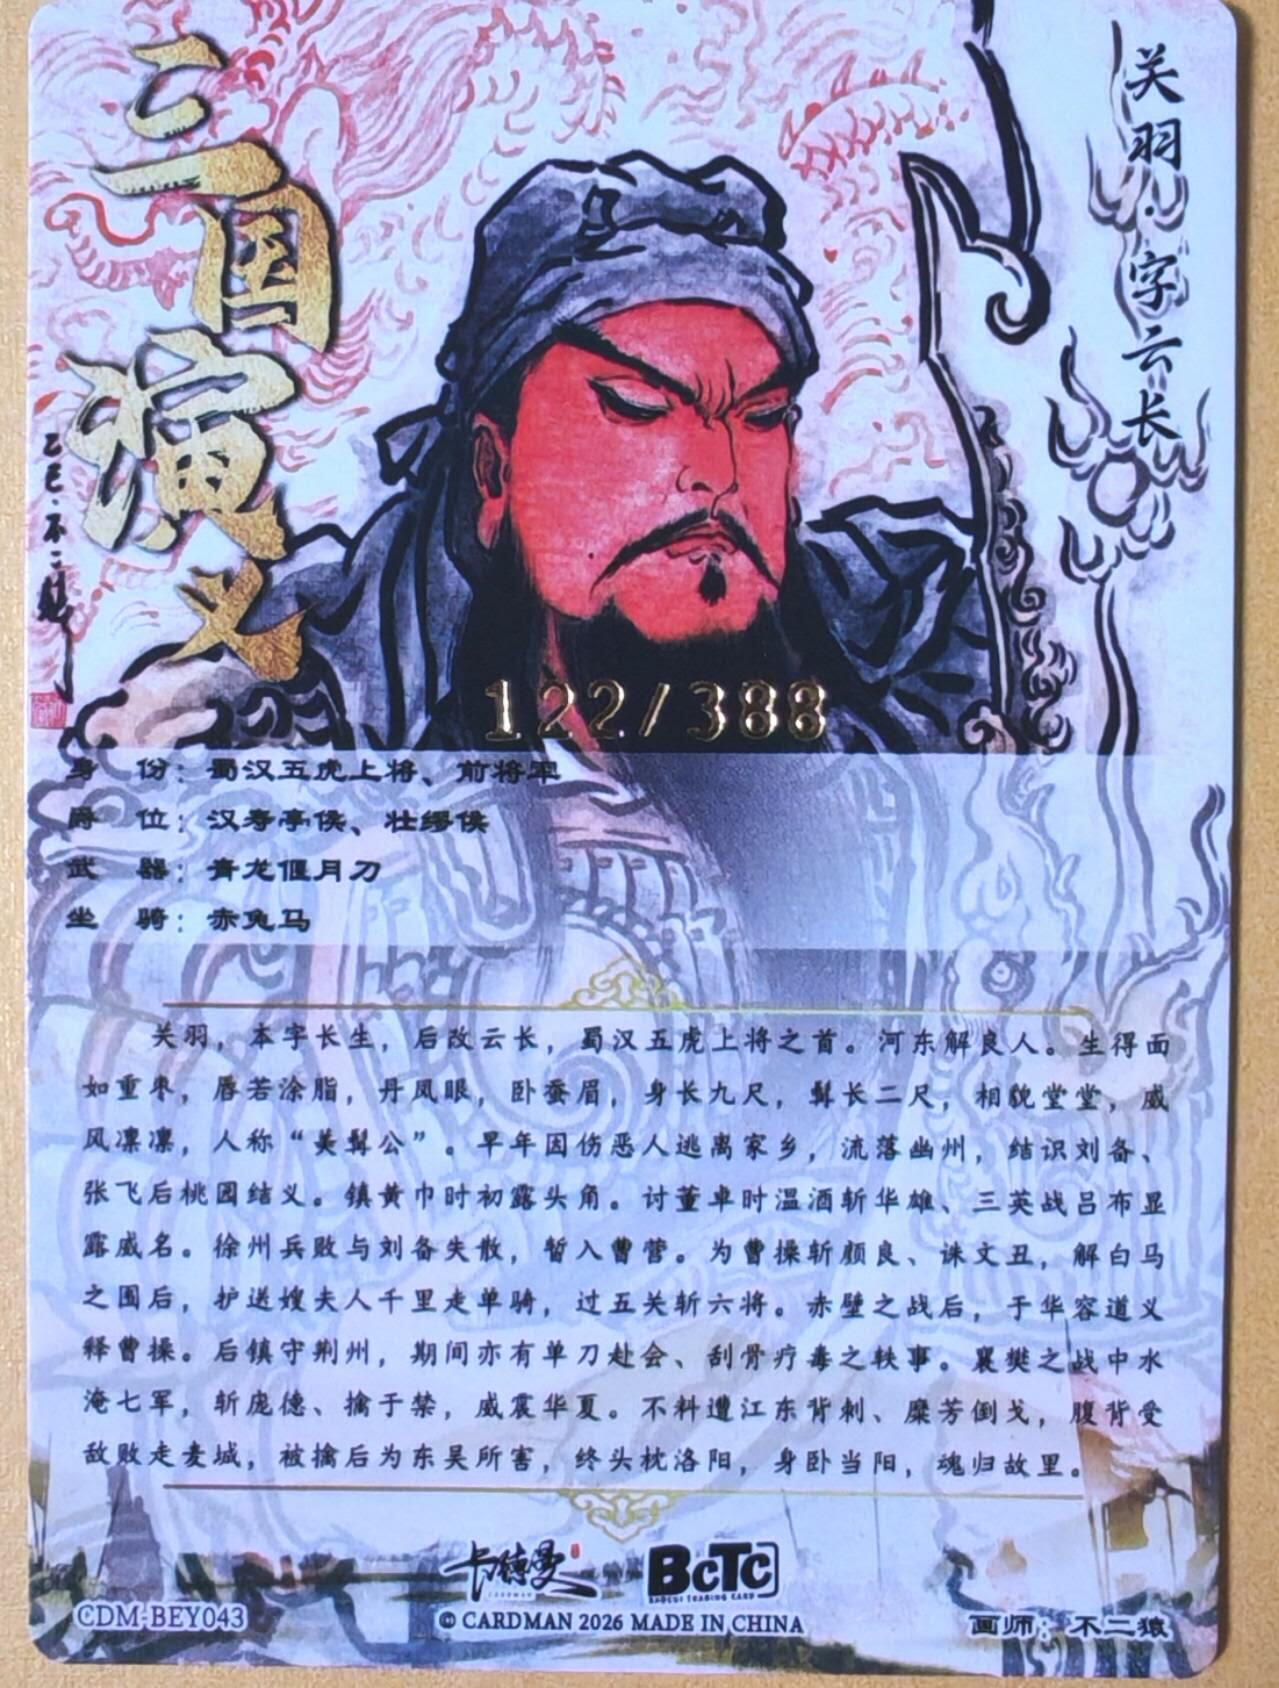 三国演义
关羽·字云长
乙巳·不二猿
122/388
身 份：蜀汉五虎上将、前将军
爵 位：汉寿亭侯、壮缪侯
武 器：青龙偃月刀
坐 骑：赤兔马
关羽，本字长生，后改云长，蜀汉五虎上将之首。河东解良人。生得面
如重枣，唇若涂脂，丹凤眼，卧蚕眉，身长九尺，髯长二尺，相貌堂堂，威
风凛凛，人称“美髯公”。早年因伤恶人逃离家乡，流落幽州，结识刘备、
张飞后桃园结义。镇黄巾时初露头角。讨董卓时温酒斩华雄、三英战吕布显
露威名。徐州兵败与刘备失散，暂入曹营。为曹操斩颜良、诛文丑，解白马
之围后，护送嫂夫人千里走单骑，过五关斩六将。赤壁之战后，于华容道义
释曹操。后镇守荆州，期间亦有单刀赴会、刮骨疗毒之轶事。襄樊之战中水
淹七军，斩庞德、擒于禁，威震华夏。不料遭江东背刺、糜芳倒戈，腹背受
敌败走麦城，被擒后为东吴所害，终头枕洛阳，身卧当阳，魂归故里。
卡德曼
CARDMAN
BCTC
BAOCUI TRADING CARD
CDM-BEY043
© CARDMAN 2026 MADE IN CHINA
画师：不二猿